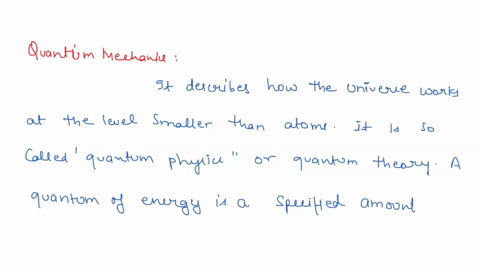 Quantum Mechanics:
It describes how the universe works
at the level smaller than atoms. It is so
called "quantum physics" or quantum theory. A
quantum of energy is a specified amount